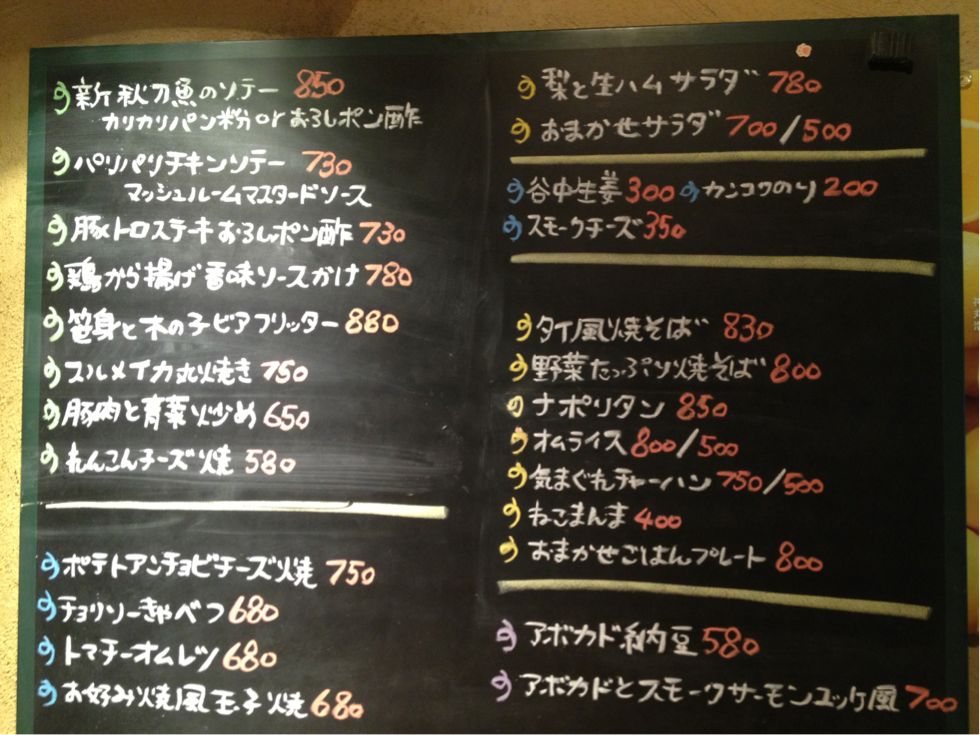 新秋刀魚のソテー 850
カリカリパン粉 or おろしポン酢
パリパリチキンソテー 730
マッシュルームマスタードソース
豚トロステーキおろしポン酢 730
鶏から揚げ香味ソースかけ 780
笹身と木の子ビアフリッター 880
スルメイカ丸焼き 750
豚肉と青菜炒め 650
れんこんチーズ焼 580
ポテトアンチョビチーズ焼 750
チョリソーきゃべつ 680
トマチーオムレツ 680
お好み焼風玉子焼 680
梨と生ハムサラダ 780
おまかせサラダ 700/500
谷中生姜 300 カンコクのり 200
スモークチーズ 350
タイ風焼そば 830
野菜たっぷり焼そば 800
ナポリタン 850
オムライス 800/500
気まぐれチャーハン 750/500
ねこまんま 400
おまかせごはんプレート 800
アボカド納豆 580
アボカドとスモークサーモンユッケ風 700